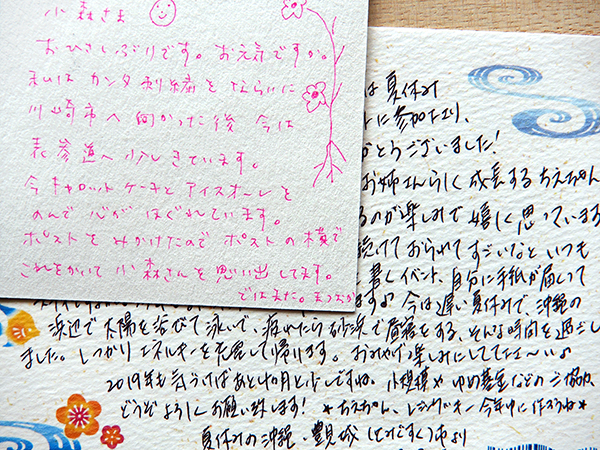 小森さま
おひさしぶりです。お元気ですか。
私はカンタ刺繍をならいに
川崎市へ向かった後 今は
表参道へ少しきています。
今キャロットケーキとアイスオーレを
のんで心がほぐれています。
ポストをみかけたので ポストの横で
これをかいて小森さんを思い出してます。
ではまた。
は夏休み
トに参加したり、
がとうございました!
お姉さんらしく成長するちえちゃん
るのが楽しみで嬉しく思っています
続けておられてすごいなといつも
書くイベント、自分に手紙が届いて
ますよ♪今は遅い夏休みで、沖縄の
浜辺で太陽を浴びて泳いで、疲れたら砂浜で昼寝をする、そんな時間を過ごし
ました。しっかりエネルギーを充電して帰ります。おみやげ楽しみにしてて下さ〜い♪
2019年も気づけばあと4か月と少しですね。小規模や ゆめ基金などのご協力、
どうぞよろしくお願い致します! *ちえちゃん、レジンクッキー今年中に作ろうね*
夏休みの沖縄・豊見城(とみぐすく)市より